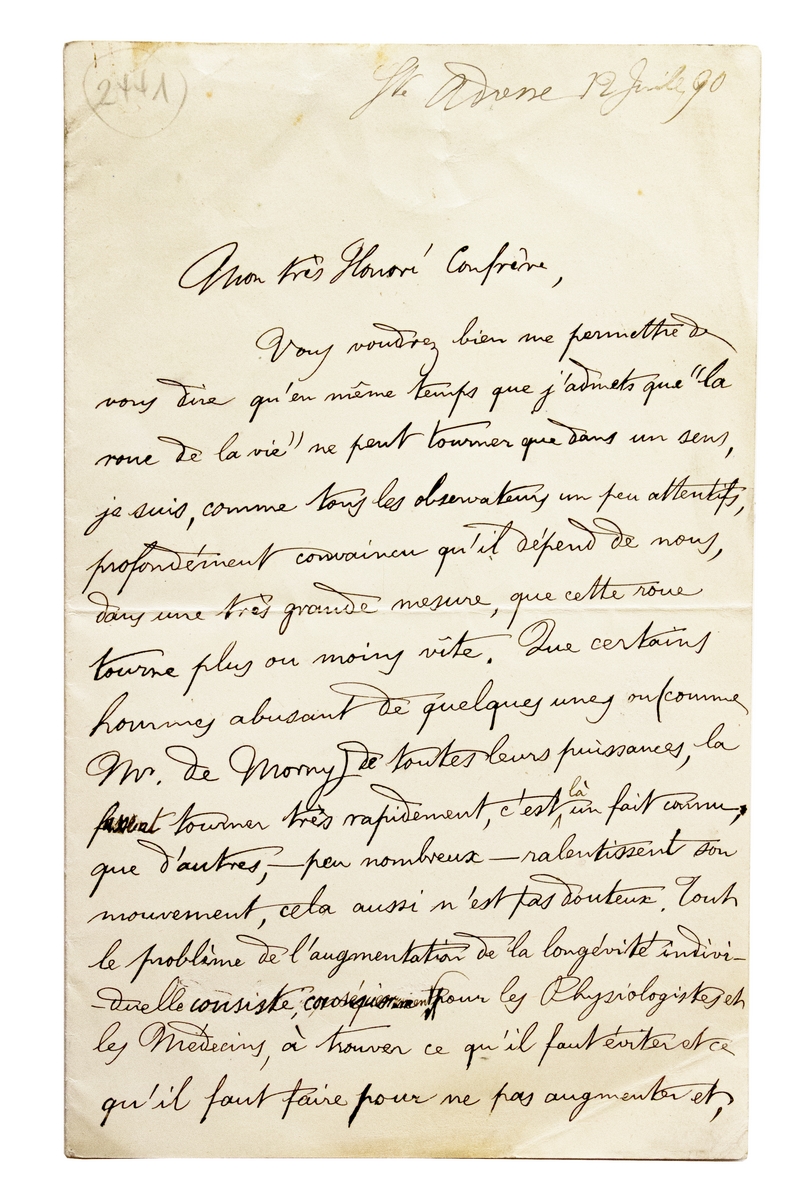 (2441)
Ste Adresse 12 Juill 90
Mon très Honoré Confrère,
Vous voudrez bien me permettre de
vous dire qu'en même temps que j'admets que "la
roue de la vie" ne peut tourner que dans un sens,
je suis, comme tous les observateurs un peu attentifs,
profondément convaincu qu'il dépend de nous,
dans une très grande mesure, que cette roue
tourne plus ou moins vîte. Que certains
hommes abusant de quelques unes ou (comme
Mr. de Morny) de toutes leurs puissances, la
fassent tourner très rapidement, c'est là un fait connu,
que d'autres, — peu nombreux — ralentissent son
mouvement, cela aussi n'est pas douteux. Tout
le problème de l'augmentation de la longévité indivi-
-duelle consiste, pour les Physiologistes et
les Médecins, à trouver ce qu'il faut éviter et ce
qu'il faut faire pour ne pas augmenter et,